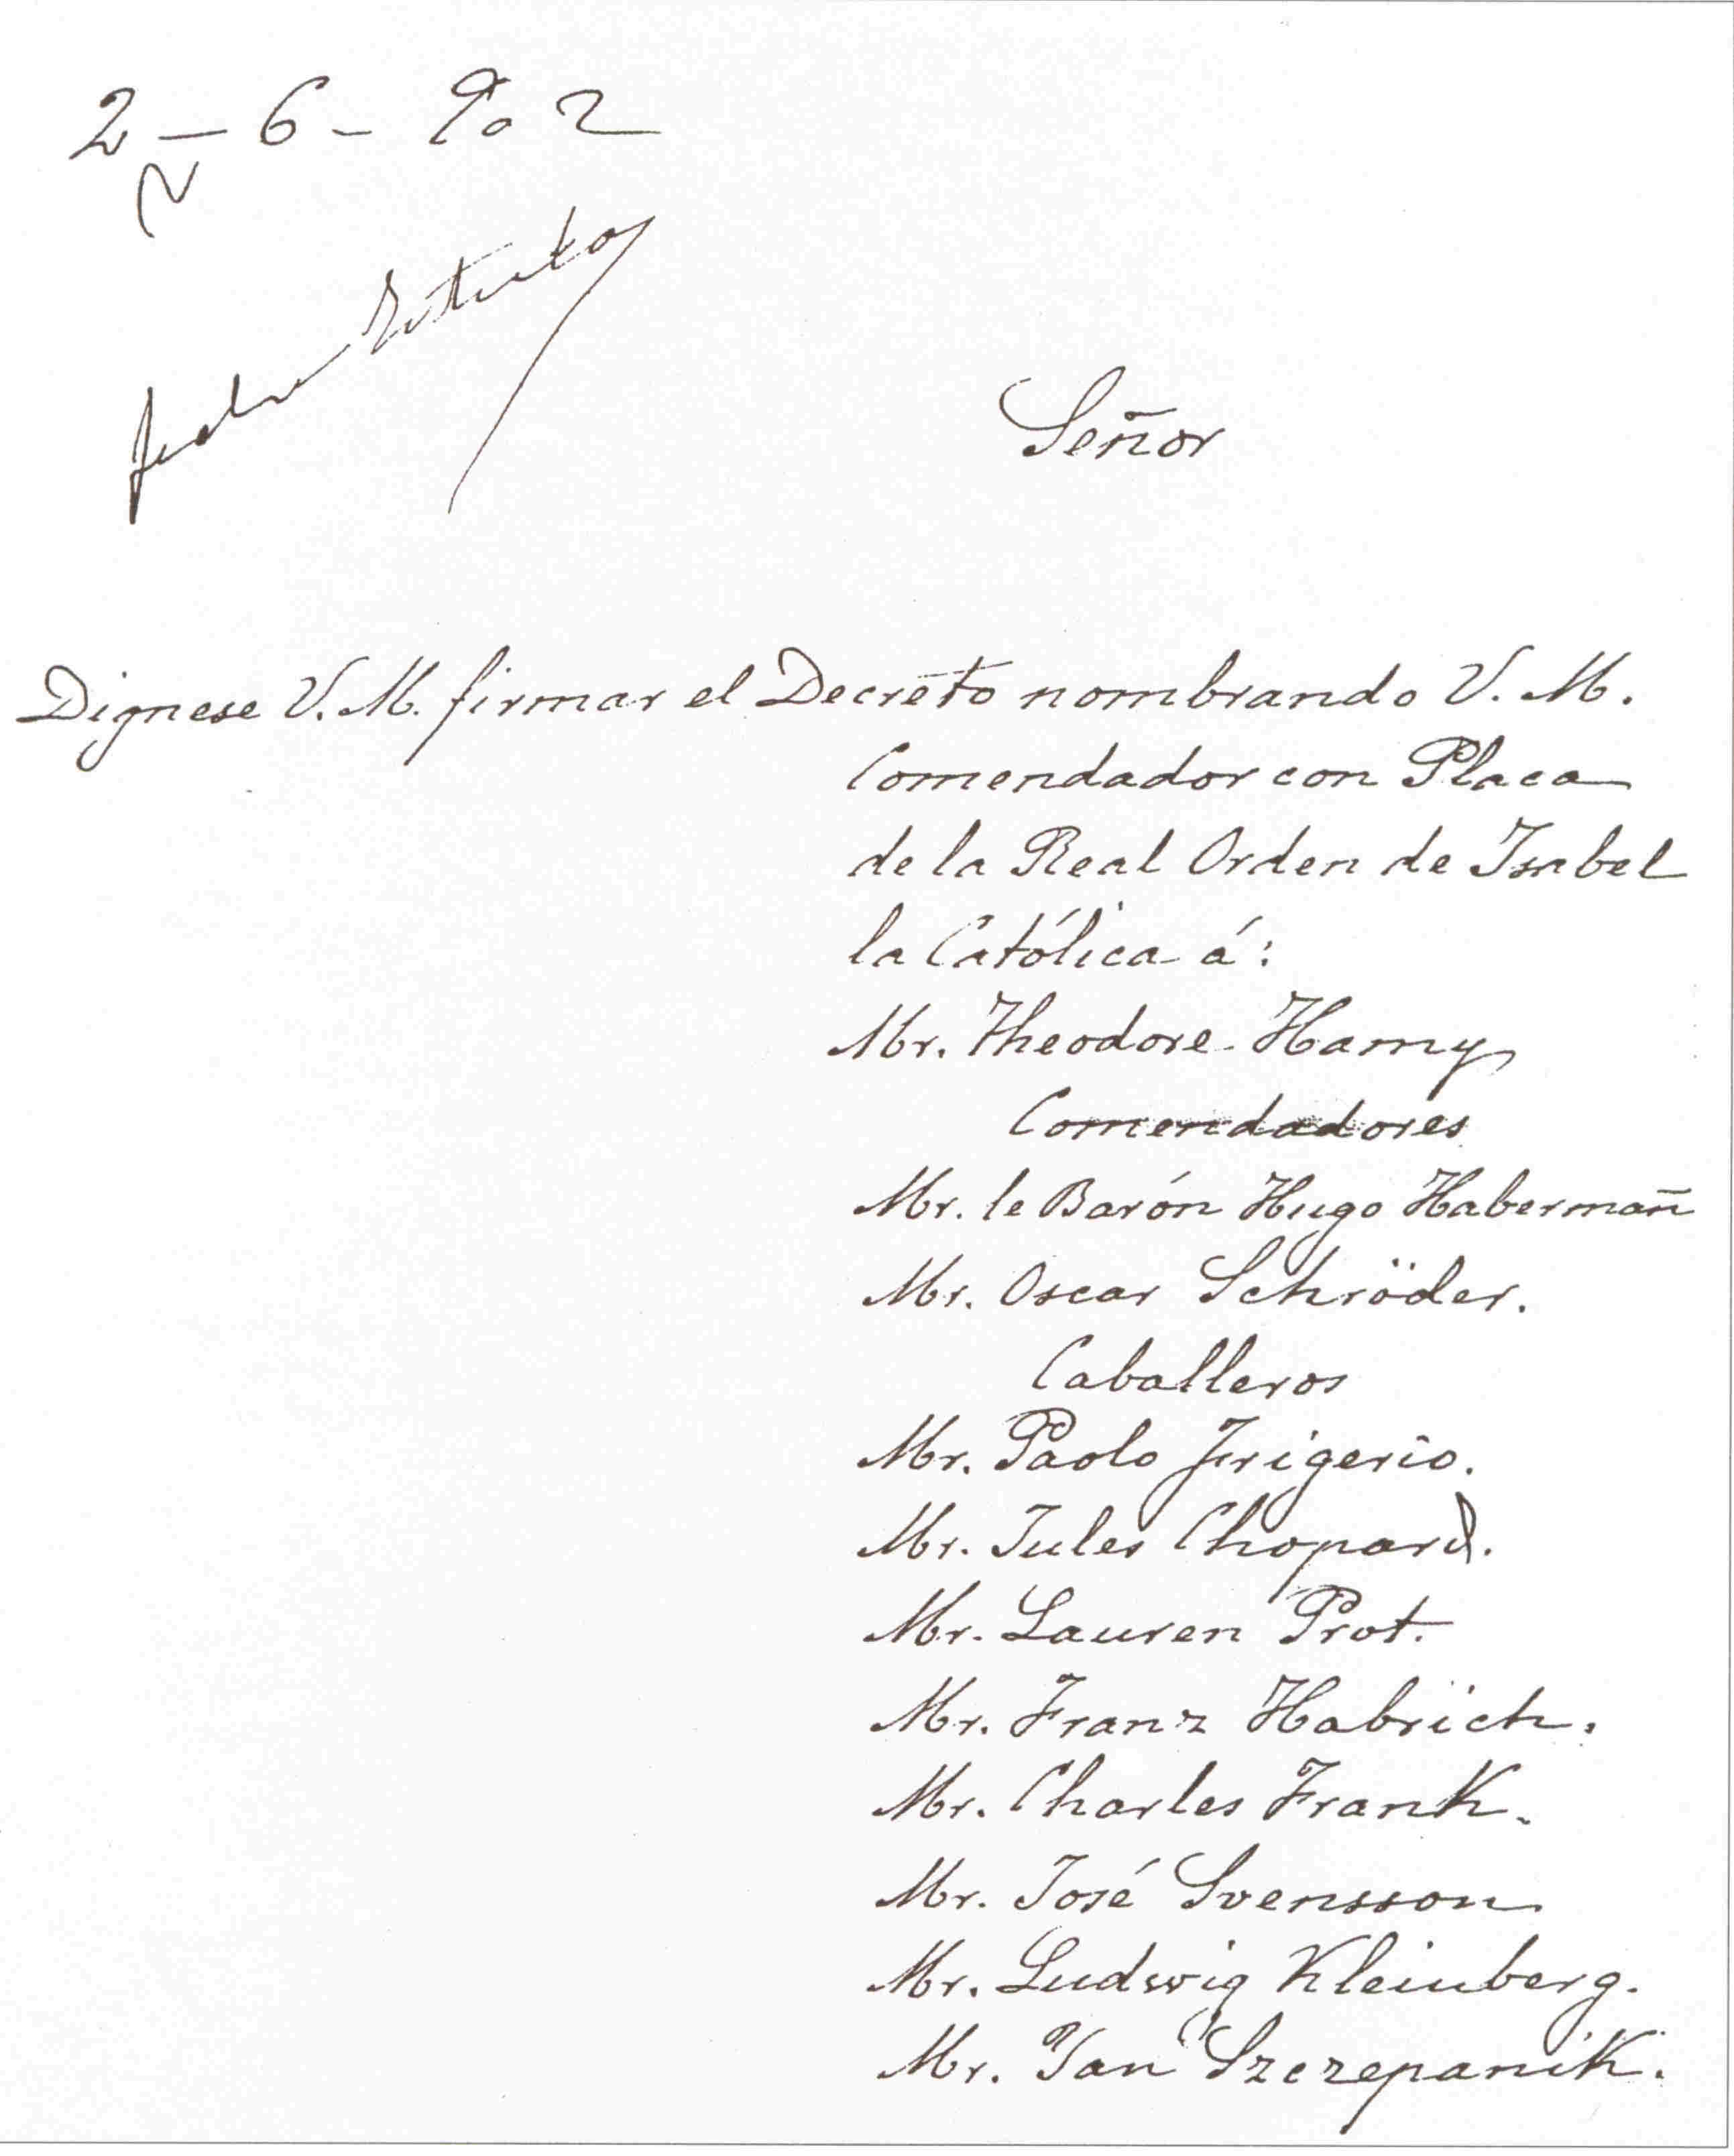 2-6-902
Señor
Dignese V. M. firmar el Decreto nombrando V. M.
Comendador con Placa
de la Real Orden de Isabel
la Católica á:
Mr. Theodore Hamy
Comendadores
Mr. le Barón Hugo Habermañ
Mr. Oscar Schröder.
Caballeros
Mr. Paolo Frigerio.
Mr. Jules Chopard.
Mr. Lauren Prot.
Mr. Franz Habrich.
Mr. Charles Frank.
Mr. José Svensson.
Mr. Ludwig Kleinberg.
Mr. Jan Szczepanik.